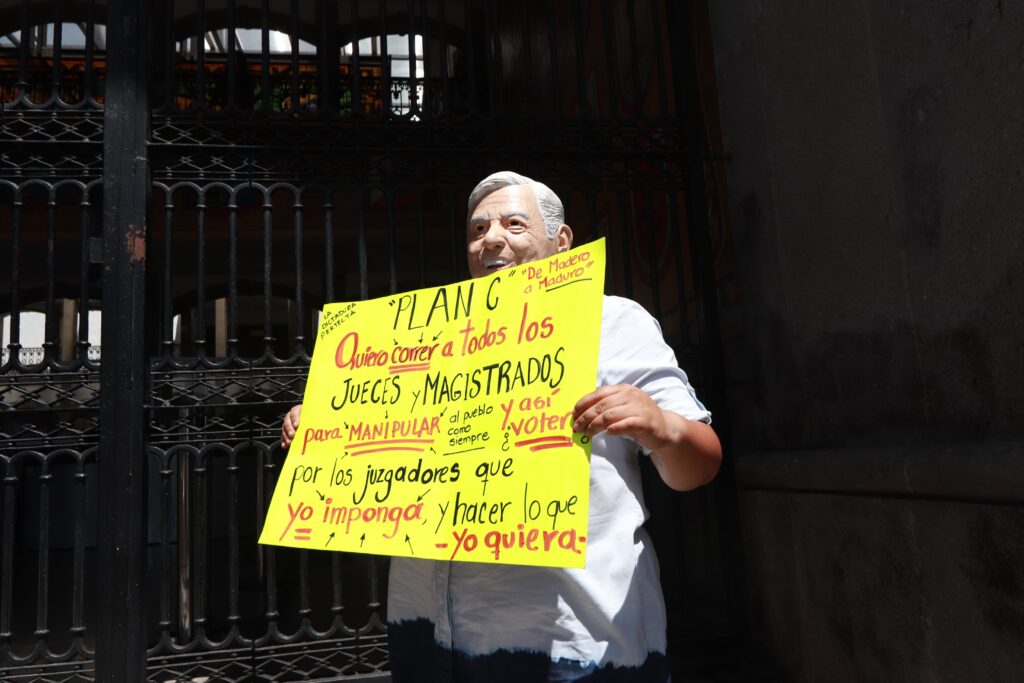 LA
DICTADURA
PERFECTA
"PLAN C"
"De Madero
a Maduro"
Quiero correr a todos los
JUECES y MAGISTRADOS
para MANIPULAR al pueblo como siempre y así
¿voten
por los juzgadores que
yo imponga, y hacer lo que
-yo quiera-